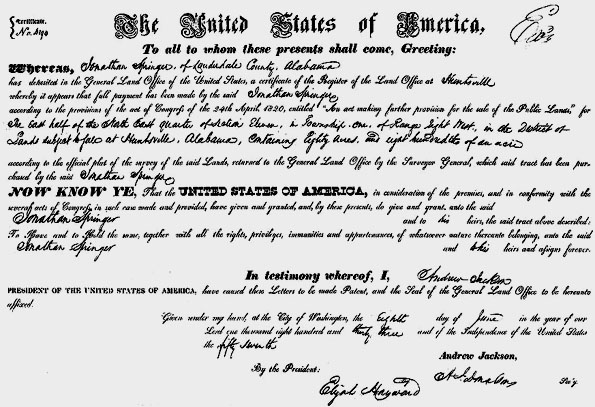 Certificate.
No.
The United States of America,
To all to whom these presents shall come, Greeting:
Whereas, Jonathan Springer, of Lauderdale County, Alabama
has deposited in the General Land Office of the United States, a certificate of the Register of the Land Office at Huntsville
whereby it appears that full payment has been made by the said Jonathan Springer
according to the provisions of the act of Congress of the 24th April, 1820, entitled "An act making further provision for the sale of the Public Lands," for
The East half of the South East quarter of section Eleven, in Township one, of Range Eight West, in the District of
Lands subject to sale at Huntsville, Alabama, Containing Eighty acres, and eight hundredths of an acre
according to the official plat of the survey of the said Lands, returned to the General Land Office by the Surveyor General, which said tract has been pur-
chased by the said Jonathan Springer
NOW KNOW YE, That the UNITED STATES OF AMERICA, in consideration of the premises, and in conformity with the
several acts of Congress, in such case made and provided, have given and granted, and, by these presents, do give and grant, unto the said
Jonathan Springer and to his heirs, the said tract above described:
To Have and to Hold the same, together with all the rights, privileges, immunities and appurtenances, of whatsoever nature thereunto belonging, unto the said
Jonathan Springer and to his heirs and assigns forever.
In testimony whereof, I, Andrew Jackson
PRESIDENT OF THE UNITED STATES OF AMERICA, have caused these Letters to be made Patent, and the Seal of the General Land Office to be hereunto
affixed.
Given under my hand, at the City of Washington, the Eighth day of June in the year of our
Lord one thousand eight hundred and thirty three and of the Independence of the United States
the fifty seventh
Andrew Jackson,
By the President:
A. J. Donelson Sec'y.
Elijah Hayward